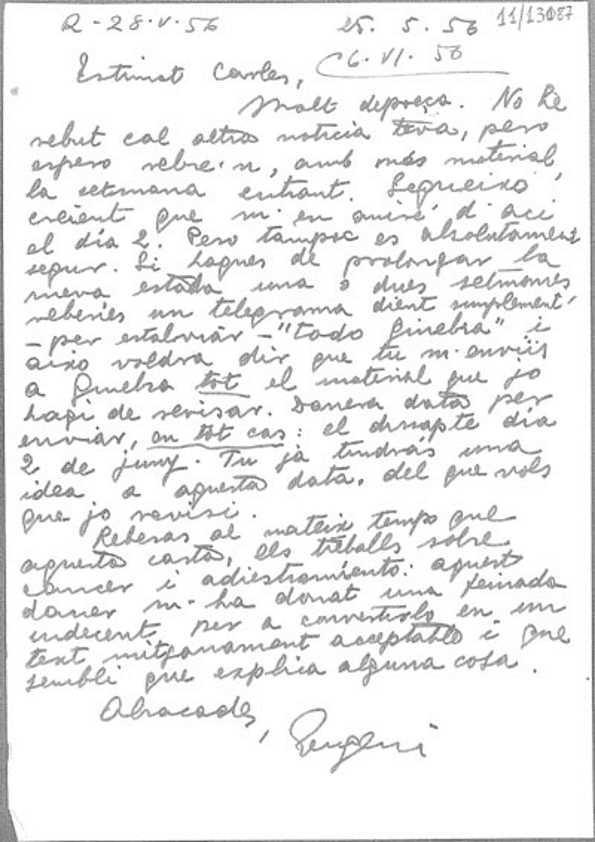 R-28-V-56
25. 5. 56
11/13087
C 6. VI. 56
Estimat Carles,
Molt depreça. No he
rebut cal altra noticia teva, pero
espero rebre'n, amb més material,
la setmana entrant. Segueixo,
creient que m'en aniré d'aci
el día 2. Pero tampoc es absolutament
segur. Si hagues de prolongar la
meva estada una o dues setmanes
reberies un telegrama dient simplement,
-per estalviar- "todo Ginebra" i
aixo voldra dir que tu m'enviis
a Ginebra tot el material que jo
hagi de revisar. Darrera data per
enviar, en tot cas: el dissapte día
2 de juny. Tu ja tindras una
idea a aquesta data, del que vols
que jo revisi.
Rebras al mateix temps que
aquesta carta, els treballs sobre
cancer i adiestramiento: aquest
darrer m'ha donat una feinada
indecent per a convertirlo en un
text mitjanament acceptable i que
sembli que explica alguna cosa.
Abracades,
Eugeni